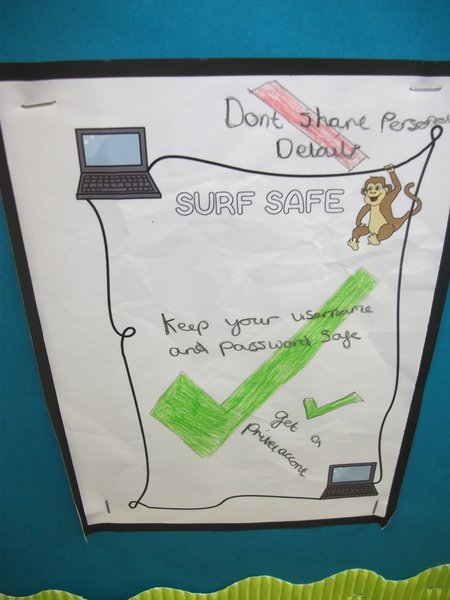 Dont share Personal
Details
SURF SAFE
Keep your username
and password safe
get a
private accont